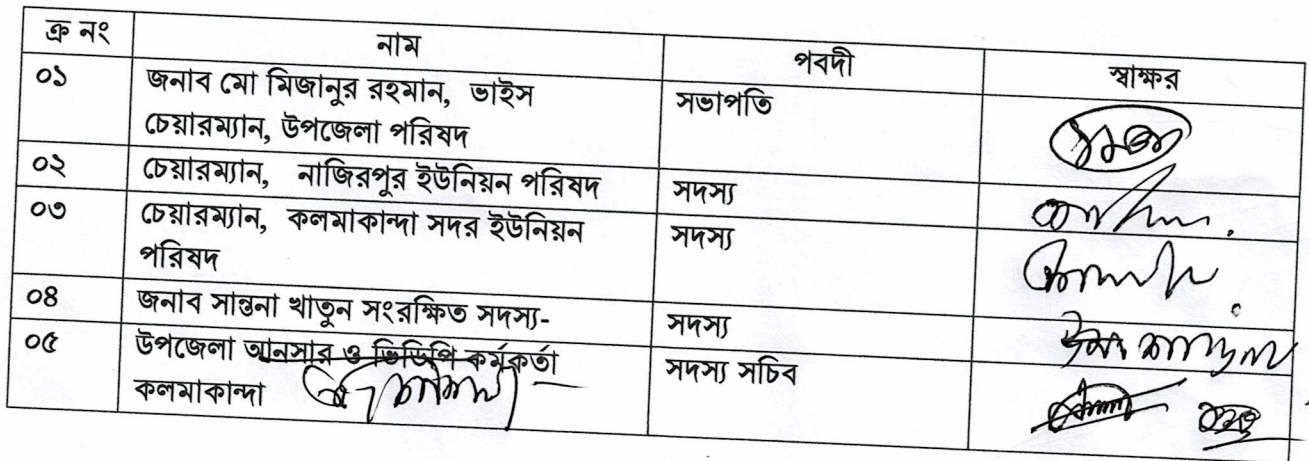 ক্র নং নাম পবদী স্বাক্ষর
০১ জনাব মো মিজানুর রহমান, ভাইস সভাপতি
চেয়ারম্যান, উপজেলা পরিষদ
০২ চেয়ারম্যান, নাজিরপুর ইউনিয়ন পরিষদ সদস্য
০৩ চেয়ারম্যান, কলমাকান্দা সদর ইউনিয়ন সদস্য
পরিষদ
০৪ জনাব সান্তনা খাতুন সংরক্ষিত সদস্য- সদস্য
০৫ উপজেলা আনসার ও ভিডিপি কর্মকর্তা সদস্য সচিব
কলমাকান্দা